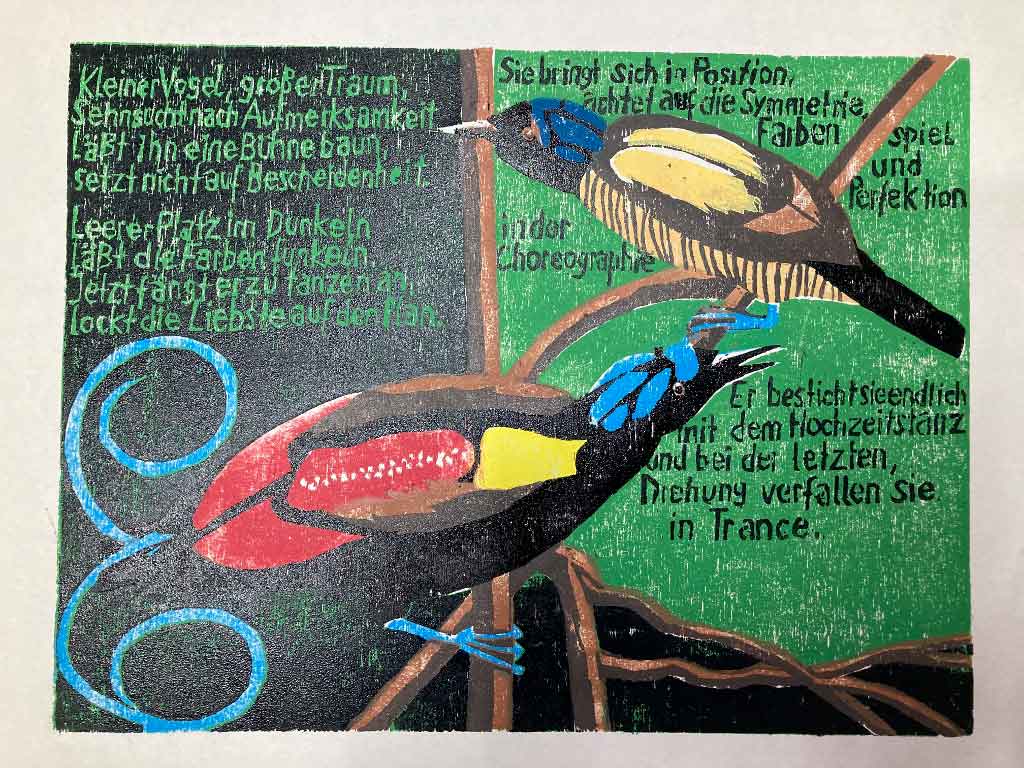 Kleiner Vogel, großer Traum,
Sehnsucht nach Aufmerksamkeit
Läßt ihn eine Bühne baun,
setzt nicht auf Bescheidenheit.
Leerer Platz im Dunkeln
läßt die Farben funkeln
Jetzt fängt er zu tanzen an,
lockt die Liebste auf den Plan.
Sie bringt sich in Position,
achtet auf die Symmetrie,
Farben spiel
und
Perfektion
in der
Choreographie
Er besticht sie endlich
mit dem Hochzeitstanz
und bei der letzten,
Drehung verfallen sie
in Trance.